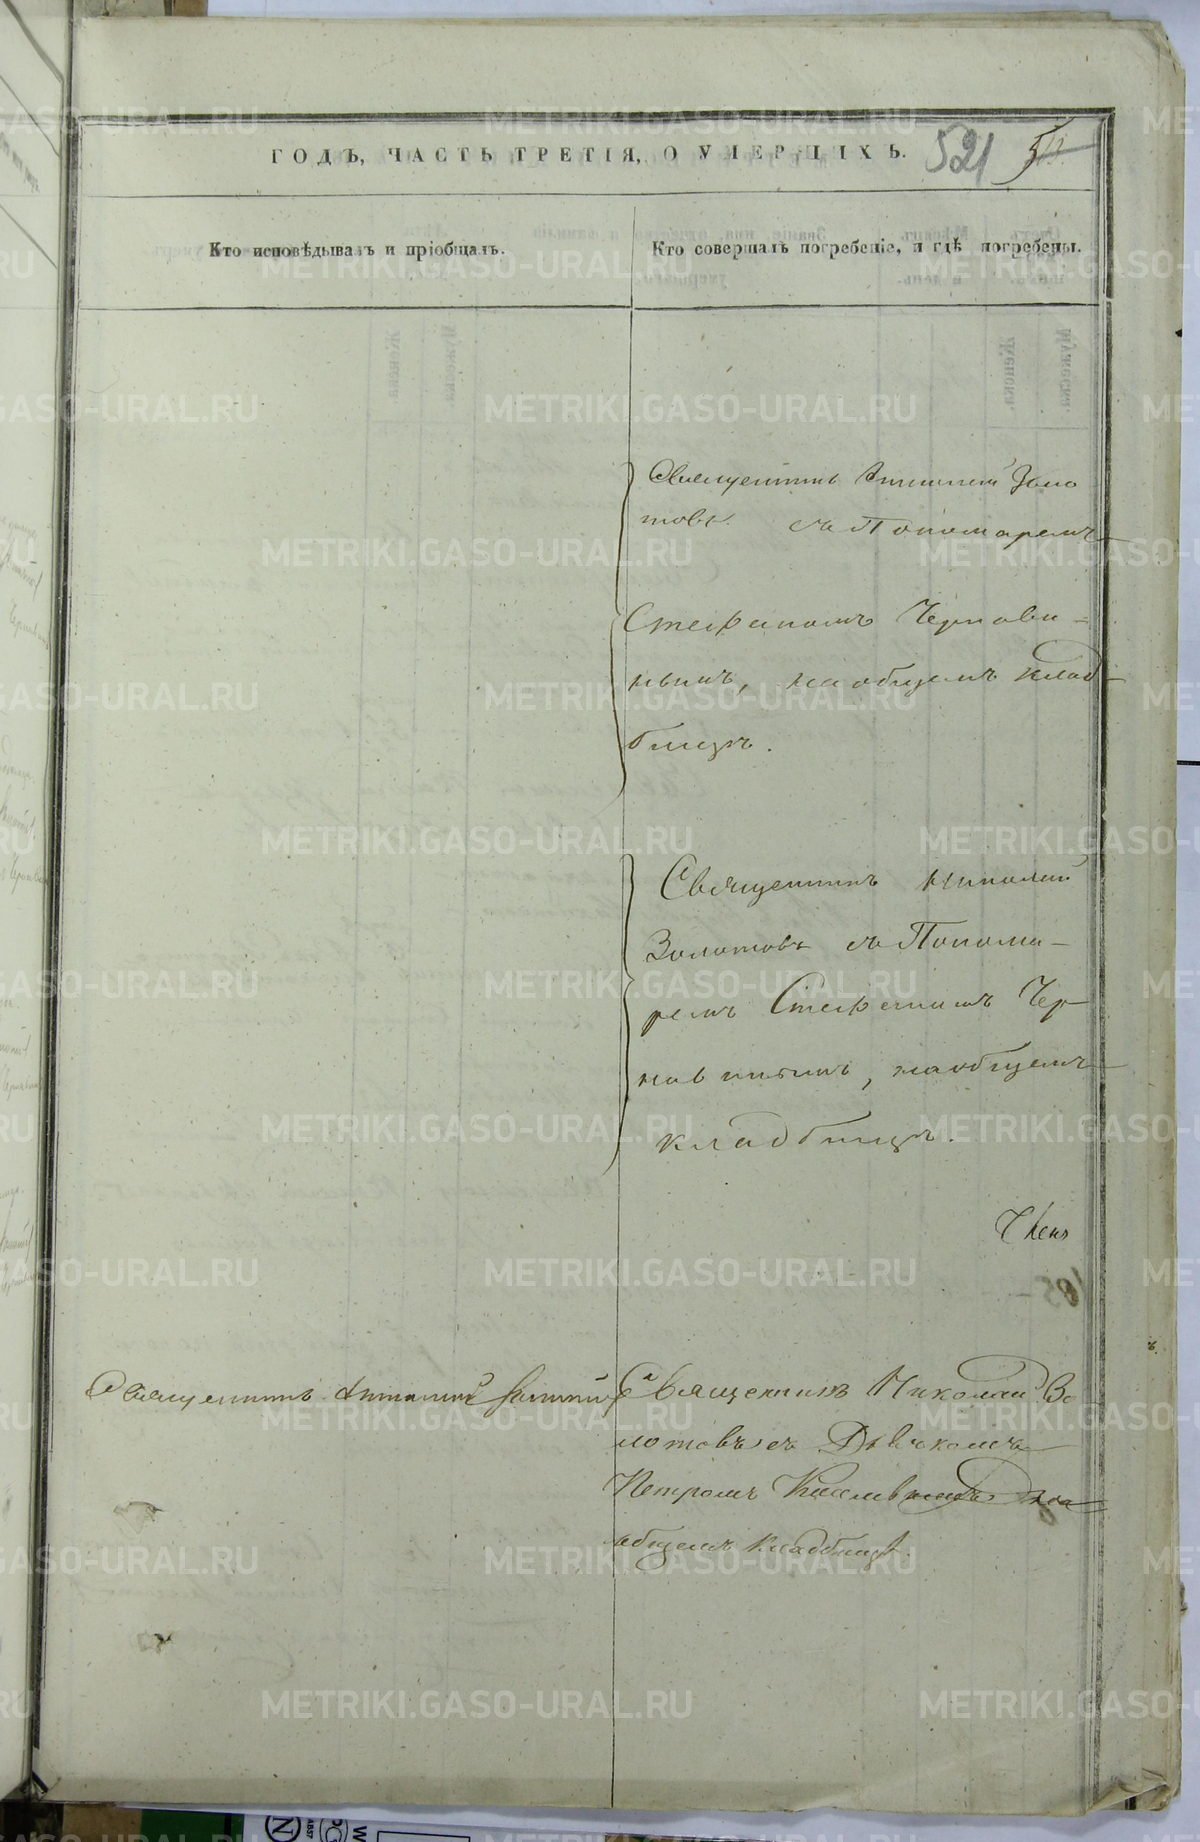 ГОДЪ, ЧАСТЬ ТРЕТІЯ, О УМЕРШИХЪ.
521
Кто исповѣдывалъ и пріобщалъ.
Кто совершалъ погребеніе, и гдѣ погребены.
Священникъ Золо
товъ съ Пономаремъ
Стефаномъ Чернави-
нымъ, на общемъ клад-
бищѣ.
Священникъ Николай
Золотовъ съ Понома-
ремъ Стефаномъ Чер-
навинымъ, на общемъ
кладбищѣ.
Священникъ
Священникъ Николай Зо
лотовъ съ Дьячкомъ
Петромъ на
общемъ кладбищѣ.
METRIKI.GASO-URAL.RU